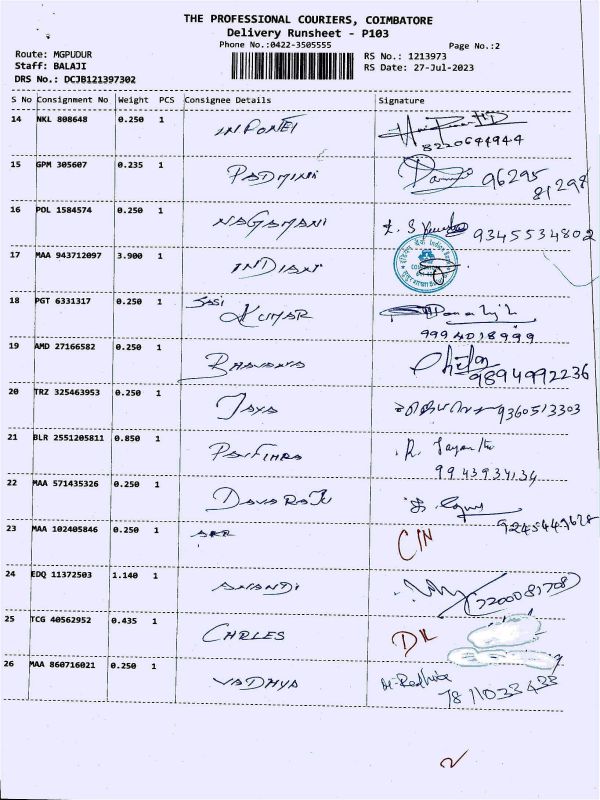 THE PROFESSIONAL COURIERS, COIMBATORE
Delivery Runsheet - P103
Phone No.:0422-3505555 Page No.:2
Route: MGPUDUR RS No.: 1213973
Staff: BALAJI RS Date: 27-Jul-2023
DRS No.: DCJB121397302
S No Consignment No Weight PCS Consignee Details Signature
14 NKL 808648 0.250 1
8220644944
15 GPM 305607 0.235 1 PADMINI 96295
81298
16 POL 1584574 0.250 1 NAGAMANI 9345534802
17 MAA 943712097 3.900 1 INDIAN
18 PGT 6331317 0.250 1 SASI KUMAR
9994018999
19 AMD 27166582 0.250 1 BHAVANYA
9894992236
20 TRZ 325463953 0.250 1 JAYA 9360513303
21 BLR 2551205811 0.850 1 R. Jayanthi
9943934134
22 MAA 571435326 0.250 1 DEVARAJ
9245449628
23 MAA 102405846 0.250 1 C/N
24 EDQ 11372503 1.140 1 ANANDI 7200081708
25 TCG 40562952 0.435 1 CHRLES DL
26 MAA 860716021 0.250 1 VADHYA M-Radhika
7811033433
2